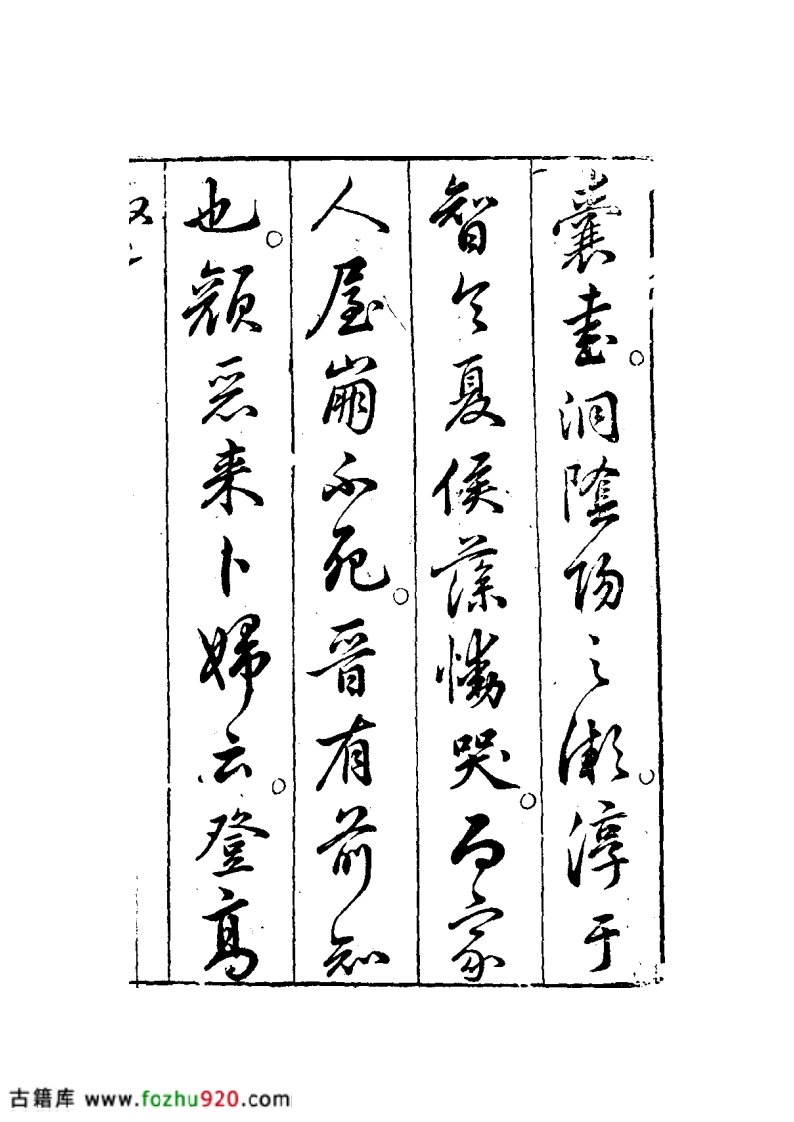 囊畫。洞陰陽之漸。淳于
智令夏侯藻慟哭。而家
人屋崩不死。晉有前知
也。顏惡来卜婦云。登高
古籍库 www.fozhu920.com